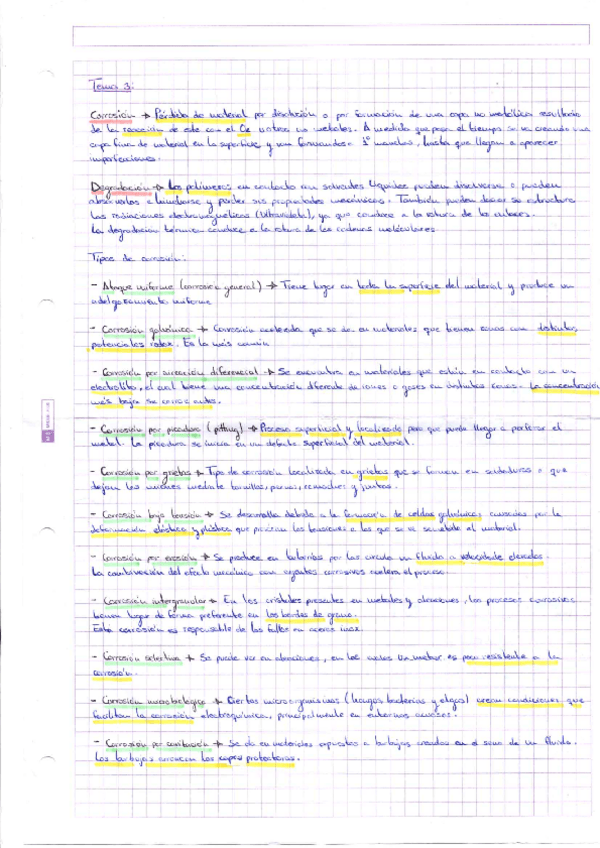 Tema 3:
Corrosión → Pérdida de material por disolución o por formación de una capa no metálica resultante
de la reacción de este con el O₂ u otros no metales. A medida que pasa el tiempo se va creando una
capa fina de material en la superficie y van formandose 1º manchas, hasta que llegan a aparecer
imperfecciones.
Degradación → Los polimeros en contacto con solventes líquidos pueden disolverse o pueden
absorberlos e hincharse y perder sus propiedades mecánicas. También pueden dañar su estructura
las radiaciones electromagnéticas (Ultravioleta), ya que conduce a la rotura de los enlaces.
La degradacion térmica conduce a la rotura de las cadenas moléculares.
Tipos de corrosión:
- Ataque uniforme (corrosion general) → Tiene lugar en toda la superficie del material y produce un
adelgazamiento uniforme
- Corrosión galvánica → Corrosión acelerada que se da en materiales que tienen zonas con distintos
potenciales redox. Es la más común
- Corrosión por aireación diferencial → Se encuentra en materiales que están en contacto con un
electrolito, el cual tiene una concentración diferente de iones o gases en distintas zonas. La concentración
más baja se corroe antes.
- Corrosión por picadura (pitting) → Proceso superficial y localizado pero que puede llegar a perforar el
metal. La picadura se inicia en un defecto superficial del material.
- Corrosión por grietas → Tipo de corrosión localizada en grietas que se forman en soldaduras o que
dejan las uniones mediante tornillos, pernos, remaches y juntas.
- Corrosión bajo tensión → Se desarrolla debido a la formación de celdas galvánicas causadas por la
deformación elástica y plástica que provocan las tensiones a las que se ve sometido el material.
- Corrosión por erosión → Se produce en tuberías por las circula un fluido a velocidades elevadas.
La combinación del efecto mecánico con agentes corrosivos acelera el proceso.
- Corrosión intergranular → En los cristales presentes en metales y aleaciones, los procesos corrosivos
tienen lugar de forma preferente en los bordes de grano.
Esta corrosión es responsable de los fallos en aceros inox.
- Corrosión selectiva → Se puede ver en aleaciones, en las cuales un metal es poco resistente a la
corrosión.
- Corrosión microbiologica → Ciertos microorganismos (hongos bacterias y algas) crean condiciones que
facilitan la corrosión electroquímica, principalmente en entornos acuosos.
- Corrosión por cavitación → Se da en materiales expuestos a burbujas creadas en el seno de un fluido.
Las burbujas arrancan las capas protectoras.